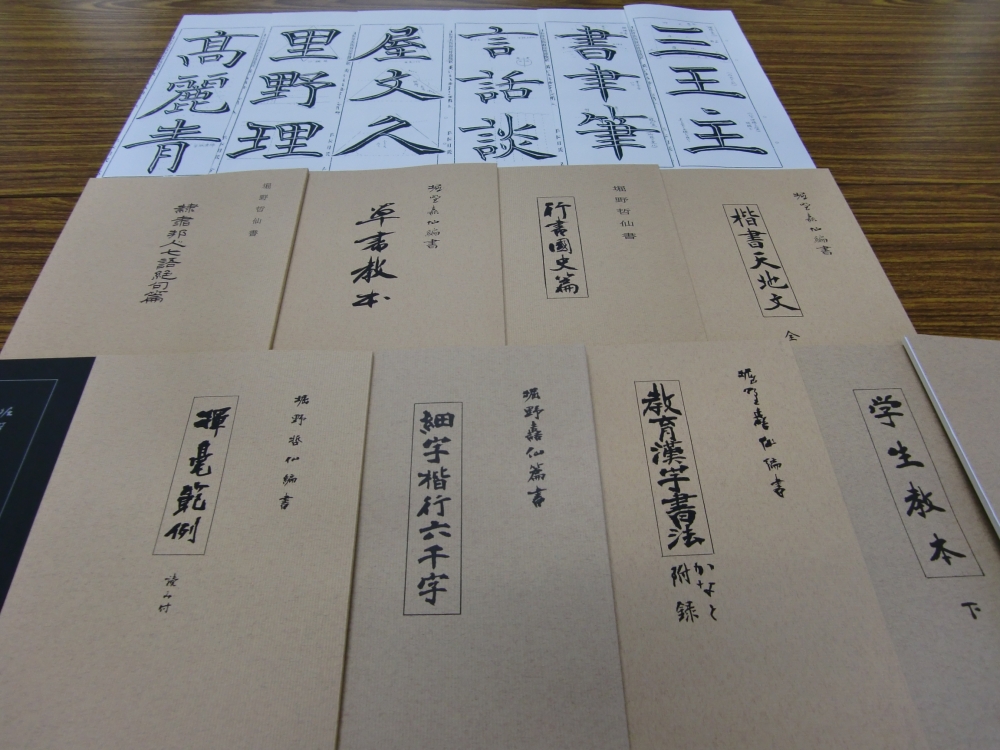 三王主
書聿筆
言話談
屋文久
里野理
髙麗青
堀野哲仙編書
楷書天地文
全
堀野哲仙書
行書國史篇
堀野哲仙編書
草書教本
堀野哲仙書
隷書邦人七語絶句篇
学生教本
下
堀野哲仙編書
教育漢字書法
かなと
附録
堀野哲仙篇書
細字楷行六千字
堀野哲仙編書
揮毫範例